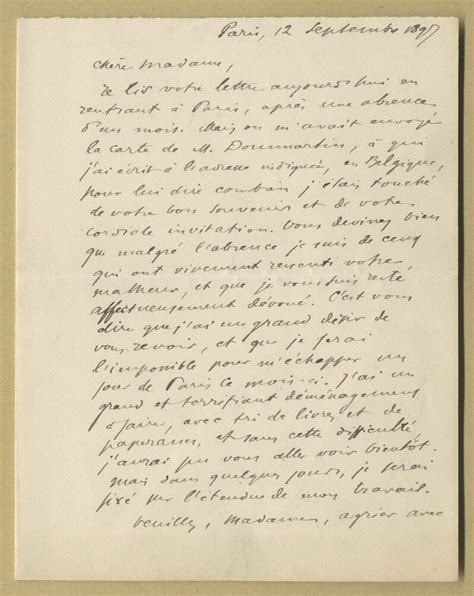 Paris, 12 Septembre 1897
Chère Madame,
Je lis votre lettre aujourd'hui en
rentrant à Paris, après une absence
d'un mois. Mais on m'avait envoyé
la carte de M. Dommartin, à qui
j'ai écrit à l'adresse indiquée, en Belgique,
pour lui dire combien j'étais touché
de votre bon souvenir et de votre
cordiale invitation. Vous devinez bien
que malgré l'absence je suis de ceux
qui ont vivement ressenti votre
malheur, et que je vous suis resté
affectueusement dévoué. C'est vous
dire que j'ai un grand désir de
vous revoir, et que je ferai
l'impossible pour m'échapper un
jour de Paris ce mois-ci. J'ai un
grand et terrifiant déménagement
à faire, avec tri de livres et de
paperasses, et sans cette difficulté
j'aurai pu vous aller voir bientôt.
Mais dans quelques jours, je serai
fixé sur l'étendue de mon travail.
Veuillez, Madame, agréer avec